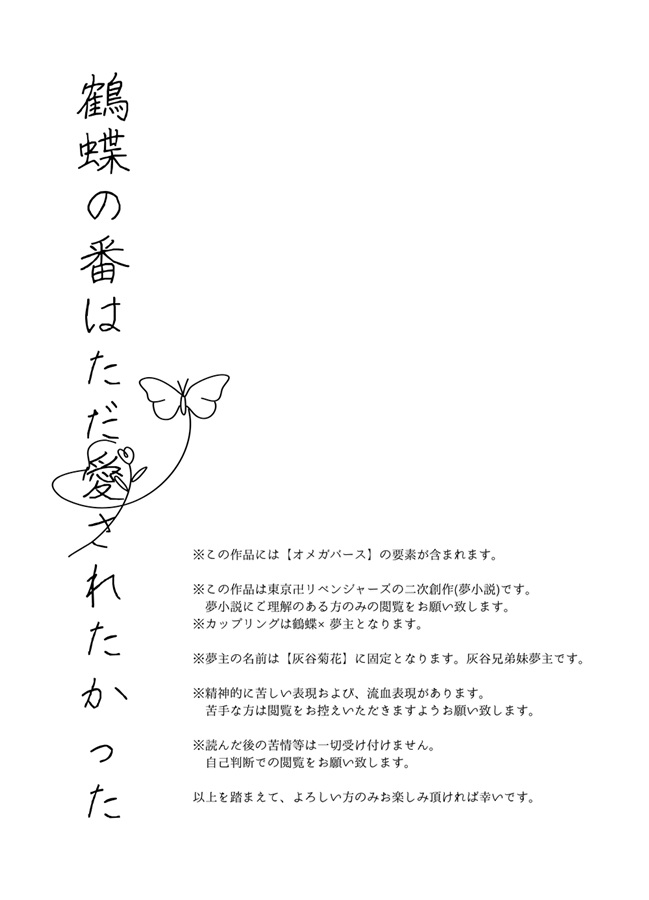 鶴蝶の番はただ愛されたかった
※この作品には【オメガバース】の要素が含まれます。
※この作品は東京卍リベンジャーズの二次創作(夢小説)です。
夢小説にご理解のある方のみの閲覧をお願い致します。
※カップリングは鶴蝶× 夢主となります。
※夢主の名前は【灰谷菊花】に固定となります。灰谷兄弟妹夢主です。
※精神的に苦しい表現および、流血表現があります。
苦手な方は閲覧をお控えいただきますようお願い致します。
※読んだ後の苦情等は一切受け付けません。
自己判断での閲覧をお願い致します。
以上を踏まえて、よろしい方のみお楽しみ頂ければ幸いです。